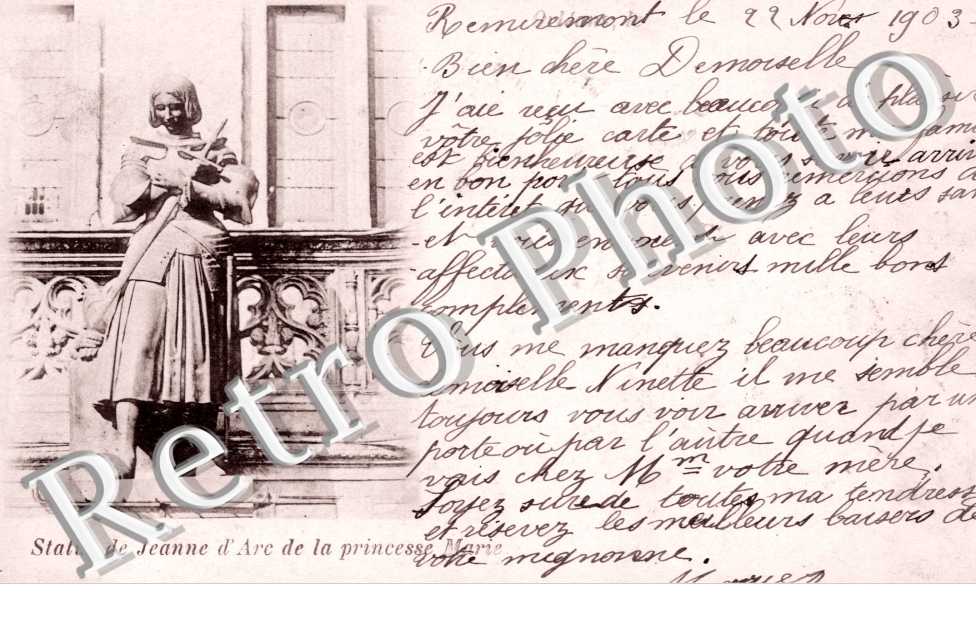 Remiremont le 22 Nov 1903
Bien chère Demoiselle
J'aie reçu avec beaucoup plaisir
vôtre jolie carte et toute ma
est bienheureuse de vous savoir
en bon tous vous remercions de
l'interêt a leurs
et avec leurs
affectueux souvenirs mille bons
complements.
Vous me manquez beaucoup chère
Demoiselle Ninette il me semble
toujours vous voir arriver par un
porte ou par l'aûtre quand je
vais chez Mm votre mère.
Soyez sure de toutes ma tendresse
et resevez les meilleurs baisers de
votre mignonne.
Statue de Jeanne d'Arc de la princesse Marie
Retro Photo